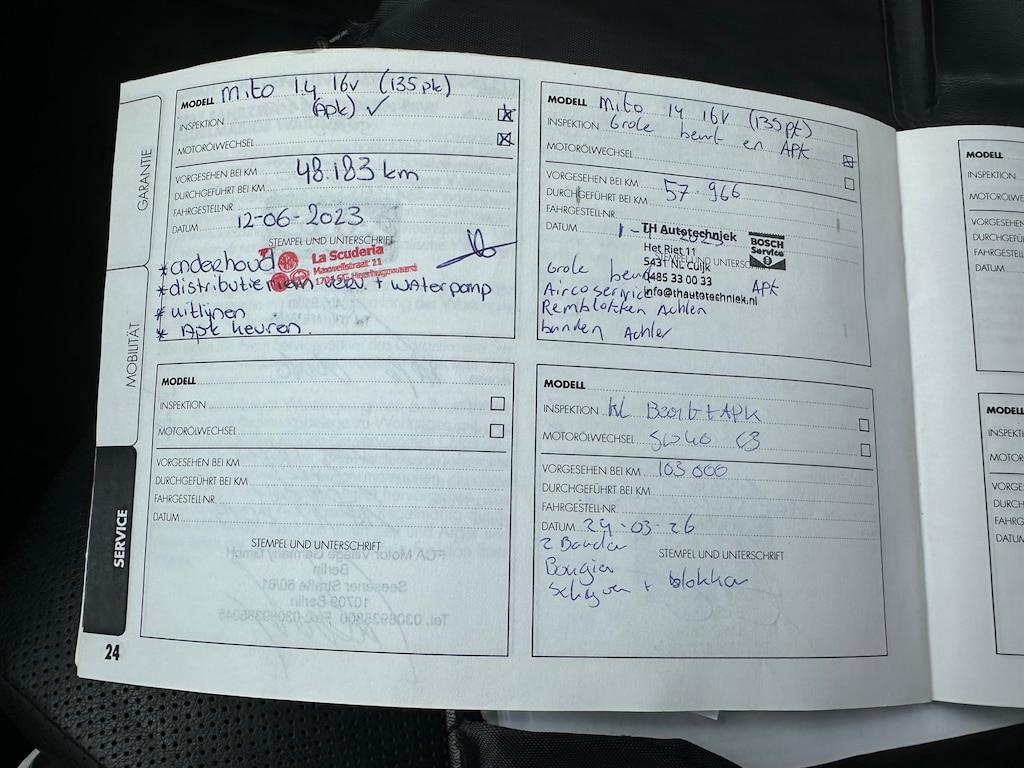 GARANTIE
MOBILITÄT
SERVICE
24
MODELL Mito 1.4 16v (135 pk)
(Apk) ✓
INSPEKTION
MOTORÖLWECHSEL
VORGESEHEN BEI KM
48.183 km
DURCHGEFÜHRT BEI KM
FAHRGESTELL-NR.
DATUM 12-06-2023
STEMPEL UND UNTERSCHRIFT
La Scuderia
Maxwellstraat 11
1704 SG Heerhugowaard
*onderhoud
*distributieriem verv. + waterpomp
*uitlijnen
*Apk keuren.
MODELL Mito 14 16V (135pt)
INSPEKTION Grote beurt en APK
MOTORÖLWECHSEL
VORGESEHEN BEI KM
57.966
DURCHGEFÜHRT BEI KM
FAHRGESTELL-NR.
DATUM
STEMPEL UND UNTERSCHRIFT
TH Autotechniek
Het Riet 11
5431 NL Cuijk
0485 33 00 33
info@thautotechniek.nl
BOSCH
Service
Grote beurt APK
Aircoservice
Remblokken Achter
banden Achter
MODELL
INSPEKTION
MOTORÖLWECHSEL
VORGESEHEN BEI KM
DURCHGEFÜHRT BEI KM
FAHRGESTELL-NR.
DATUM
STEMPEL UND UNTERSCHRIFT
MODELL
INSPEKTION kl Beurt + APK
MOTORÖLWECHSEL 5w40 C3
VORGESEHEN BEI KM 103 000
DURCHGEFÜHRT BEI KM
FAHRGESTELL-NR.
DATUM 24-03-26
2 Banden
STEMPEL UND UNTERSCHRIFT
Bougies
Schijven + blokken
MODELL
INSPEKTION
MOTORÖLWE
VORGESEHEN
DURCHGEFÜ
FAHRGESTELL
DATUM
MODELL
INSPEKTI
MOTOR
VORGES
DURCH
FAHRG
DATUM